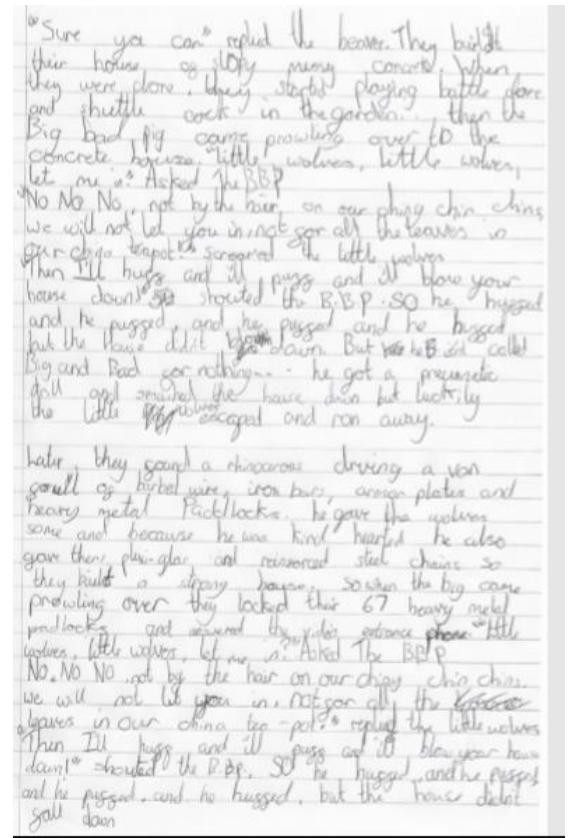 "Sure you can" replied the beaver. They build
their house of slopy concrete. When
they were done, they started playing battle dore
and shuttle cock in the garden. then the
Big bad pig came prowling over to the
concrete house. "little wolves, little wolves,
let me in" Asked The BBP
"No No No, not by the hair on our chiny chin chins
we will not let you in, not for all the leaves in
our china teapot" screamed the little wolves
"Then I'll huff and ill puff and ill blow your
house down!" shouted the B.B.P. SO he huffed
and he puffed, and he puffed and he huffed
but the House didn't down. But he called
Big and Bad for nothing... he got a
drill and smashed the house down but luckily
the little wolves escaped and ran away.
Later, they found a driving a van
full of wire, iron bars, plates and
heavy metal Padlocks. he gave the wolves
some and because he was kind hearted he also
gave them and steel chains so
they a strong house, so when the big came
prowling over they locked their 67 heavy metal
padlocks and the entrance phone. "little
wolves, little wolves, let me in" Asked The BBP
No, No No not by the hair on our chiny chin chins.
we will not let you in, not for all the
leaves in our china tea-pot" replied the little wolves
"Then Ill huff and ill puff and ill blow your house
down!" shouted the B.B.P. SO he huffed and he puffed
and he puffed, and he huffed, but the house didn't
fall down